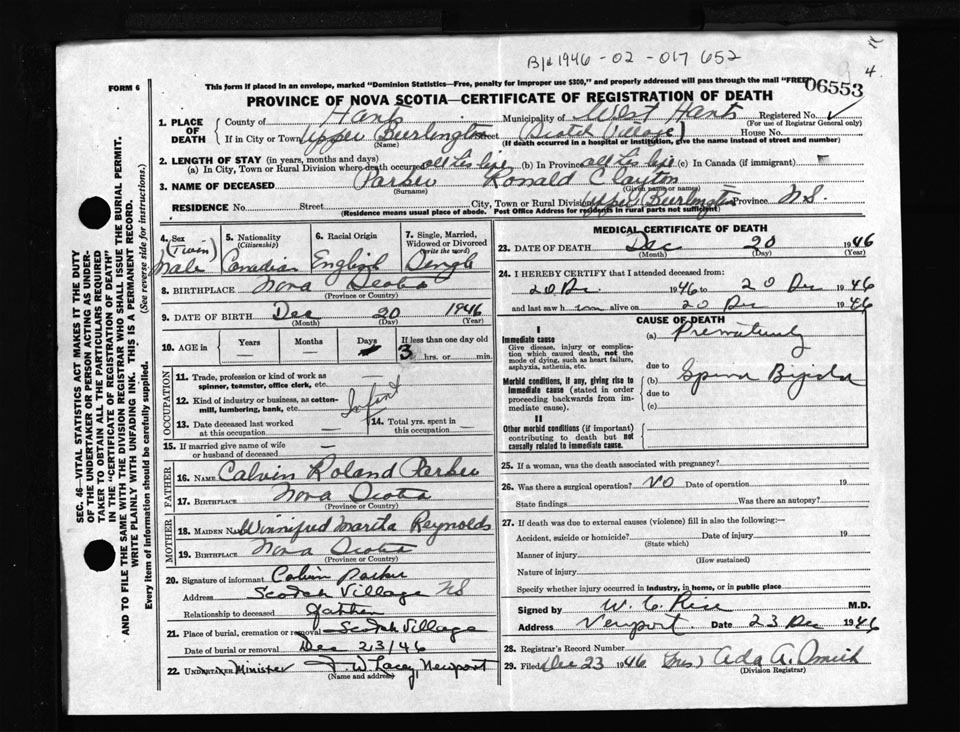 B/R 1946-02-017652
4
FORM 6
This form if placed in an envelope, marked "Dominion Statistics—Free, penalty for improper use $300," and properly addressed will pass through the mail "FREE"
06553
PROVINCE OF NOVA SCOTIA—CERTIFICATE OF REGISTRATION OF DEATH
1. PLACE OF DEATH
County of Hants Municipality of West Hants Registered No. ✓
(For use of Registrar General only)
If in City or Town Upper Burlington Street (Scotch Village) House No.
(If death occurred in a hospital or institution, give the name instead of street and number)
2. LENGTH OF STAY (in years, months and days)
(a) In City, Town or Rural Division where death occurred all his life (b) In Province all his life (c) In Canada (if immigrant) —
3. NAME OF DECEASED Parker Ronald Clayton
(Surname) (Given name or names)
RESIDENCE No. Street City, Town or Rural Division Upper Burlington Province N.S.
(Residence means usual place of abode. Post Office Address for residents in rural parts not sufficient)
4. Sex (Twin) Male
5. Nationality (Citizenship) Canadian
6. Racial Origin English
7. Single, Married, Widowed or Divorced (write the word) Single
8. BIRTHPLACE Nova Scotia
(Province or Country)
9. DATE OF BIRTH Dec 20 1946
(Month) (Day) (Year)
10. AGE in Years — Months — Days — If less than one day old 3 hrs. or min.
OCCUPATION
11. Trade, profession or kind of work as spinner, teamster, office clerk, etc.
12. Kind of industry or business, as cotton-mill, lumbering, bank, etc.
Infant
13. Date deceased last worked at this occupation —
14. Total yrs. spent in this occupation —
15. If married give name of wife or husband of deceased —
FATHER
16. NAME Calvin Roland Parker
17. BIRTHPLACE Nova Scotia
(Province or Country)
MOTHER
18. MAIDEN NAME Winnifred Marita Reynolds
19. BIRTHPLACE Nova Scotia
(Province or Country)
20. Signature of informant Calvin Parker
Address Scotch Village NS
Relationship to deceased father
21. Place of burial, cremation or removal Scotch Village
Date of burial or removal Dec 23/46
22. UNDERTAKER Minister J. W. Lacey, Newport
(Name and address)
MEDICAL CERTIFICATE OF DEATH
23. DATE OF DEATH Dec 20 1946
(Month) (Day) (Year)
24. I HEREBY CERTIFY that I attended deceased from:
20 Dec 1946 to 20 Dec 1946
and last saw h im alive on 20 Dec 1946
CAUSE OF DEATH
I
Immediate cause
Give disease, injury or complication which caused death, not the mode of dying, such as heart failure, asphyxia, asthenia, etc.
(a) Prematurity
due to
Morbid conditions, if any, giving rise to immediate cause (stated in order proceeding backwards from immediate cause).
(b) Spina Bifida
due to
(c)
II
Other morbid conditions (if important) contributing to death but not causally related to immediate cause.
25. If a woman, was the death associated with pregnancy?
26. Was there a surgical operation? No Date of operation 19
State findings Was there an autopsy?
27. If death was due to external causes (violence) fill in also the following:—
Accident, suicide or homicide? Date of injury 19
(State which)
Manner of injury
(How sustained)
Nature of injury
Specify whether injury occurred in industry, in home, or in public place
Signed by W. C. Rice M.D.
Address Newport. Date 23 Dec 1946
28. Registrar's Record Number
29. Filed Dec 23 1946 (Mrs) Ada A. Smith
(Division Registrar)
SEC. 46—VITAL STATISTICS ACT MAKES IT THE DUTY
OF THE UNDERTAKER OR PERSON ACTING AS UNDER-
TAKER TO OBTAIN ALL THE PARTICULARS REQUIRED
IN THE "CERTIFICATE OF REGISTRATION OF DEATH"
AND TO FILE THE SAME WITH THE DIVISION REGISTRAR WHO SHALL ISSUE THE BURIAL PERMIT.
WRITE PLAINLY WITH UNFADING INK. THIS IS A PERMANENT RECORD.
Every item of information should be carefully supplied. (See reverse side for instructions.)